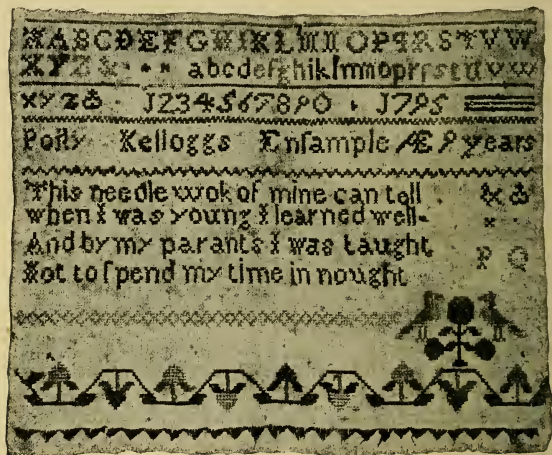 ABCDEFGHIKLMNOPQRSTVW
XYZ& abcdefghiklmnoprſstuvw
xyz& 1234567890 1795
Polly Kelloggs Enſample Æ 9 years
This needle wok of mine can tell
when I was young I learned well
And by my parants I was taught
Not to ſpend my time in nought
P Q